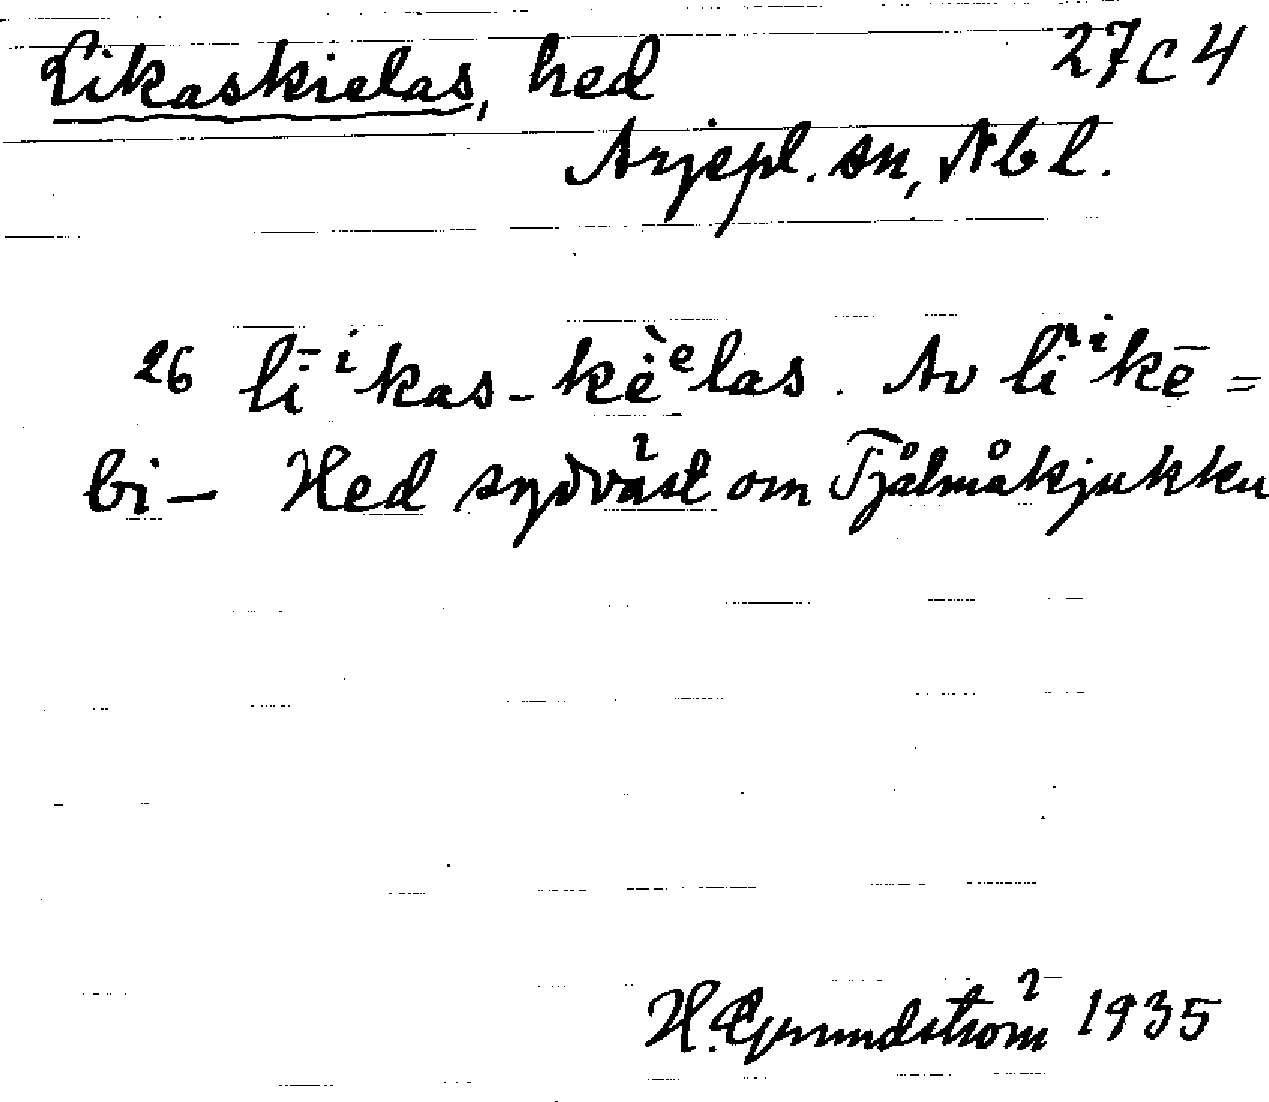 Likaskielas, hed 27C4
Arjepl. sn, Nbl.
26 lī ⁱkas-kèᵉlas. Av lī ⁱkē =
bi- Hed sydväst om Tjålmåkjukku
H. Grundström 1935